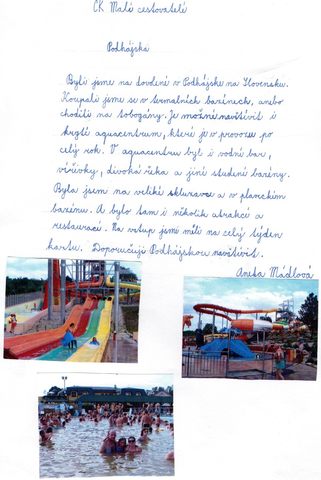 CK Malí cestovatelé
Podhájská
Byli jsme na dovolené v Podhájské na Slovensku.
Koupali jsme se v termálních bazénech, anebo
chodili na tobogány. Je možné navštívit i
kryté aquacentrum, které je v provozu po
celý rok. V aquacentru byl i vodní bar,
vířivky, divoká řeka a jiné studené bazény.
Byla jsem na veliké skluzavce a v plaveckém
bazénu. A bylo tam i několik atrakcí a
restaurací. Na vstup jsme měli na celý týden
kartu. Doporučuji Podhájskou navštívit.
Aneta Mádlová